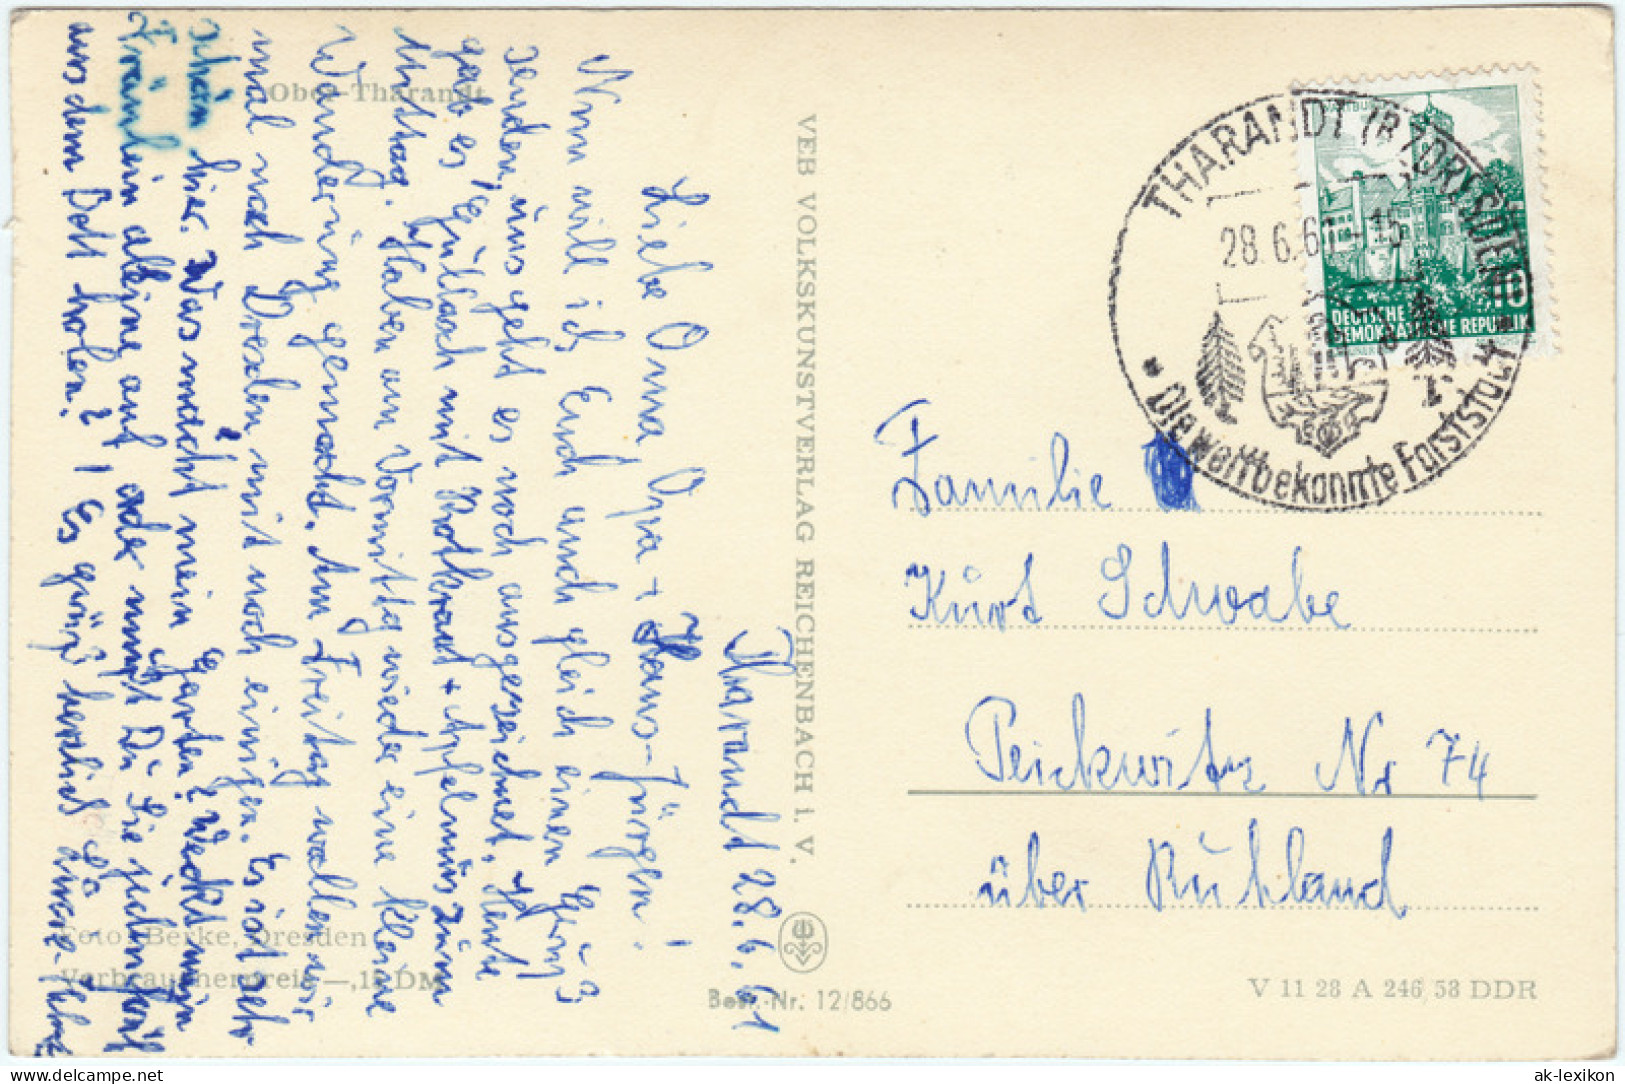 Ober-Tharandt
Tharandt 28.6.61
Liebe Oma Opa + Hans-Jürgen!
Nun will ich Euch auch gleich einen Gruß
senden, uns geht es noch ausgezeichnet. Heute
gab es Gullasch mit Rotkraut + Apfelmus zum
Mittag. Haben am Vormittag wieder eine kleine
Wanderung gemacht. Am Freitag wollen wir
mal nach Dresden mit noch einigen. Es ist sehr
schön hier. Was macht mein Garten? Weckt mein
Fräulein alleine auf oder mußt Du Sie jedesmal
aus dem Bett holen? Es grüßt herzlich Eure
Foto: Berke, Dresden
Verbraucherpreis —,15 DM
VEB VOLKSKUNSTVERLAG REICHENBACH i. V.
Best.-Nr. 12/866
THARANDT
28.6.61-15
Die weltbekannte Forststadt
WARTBURG
10
DEUTSCHE
DEMOKRATISCHE REPUBLIK
Familie
Kurt Schwabe
Peickwitz Nr 74
über Ruhland
V 11 28 A 246/58 DDR
ak-lexikon